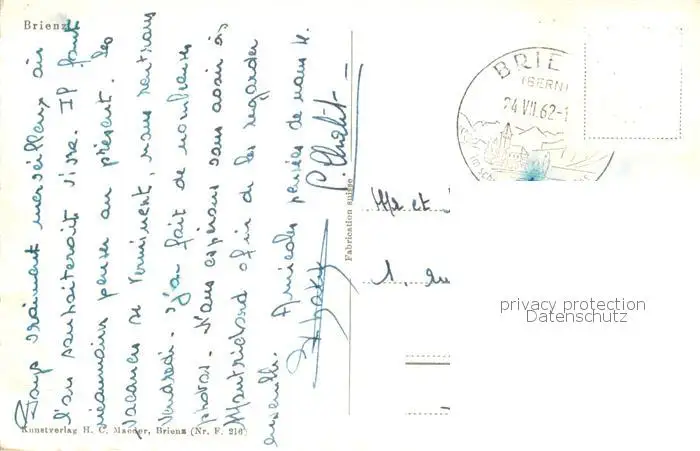 Brienz
Pays vraiment merveilleux où
l'on souhaiterait vivre. Il faut
néanmoins penser au présent. les
vacances se terminent, nous rentrons
Vendredi. J'ai fait de nombreuses
photos. Nous espérons vous avoir à
Montrichard afin de les regarder
ensemble. Amicales pensées de nous 4.
Kunstverlag H. C. Maeder, Brienz (Nr. F. 216)
Fabrication suisse
BRIE
(BERN)
24.VII.62-1
Mr et
1,
privacy protection
Datenschutz